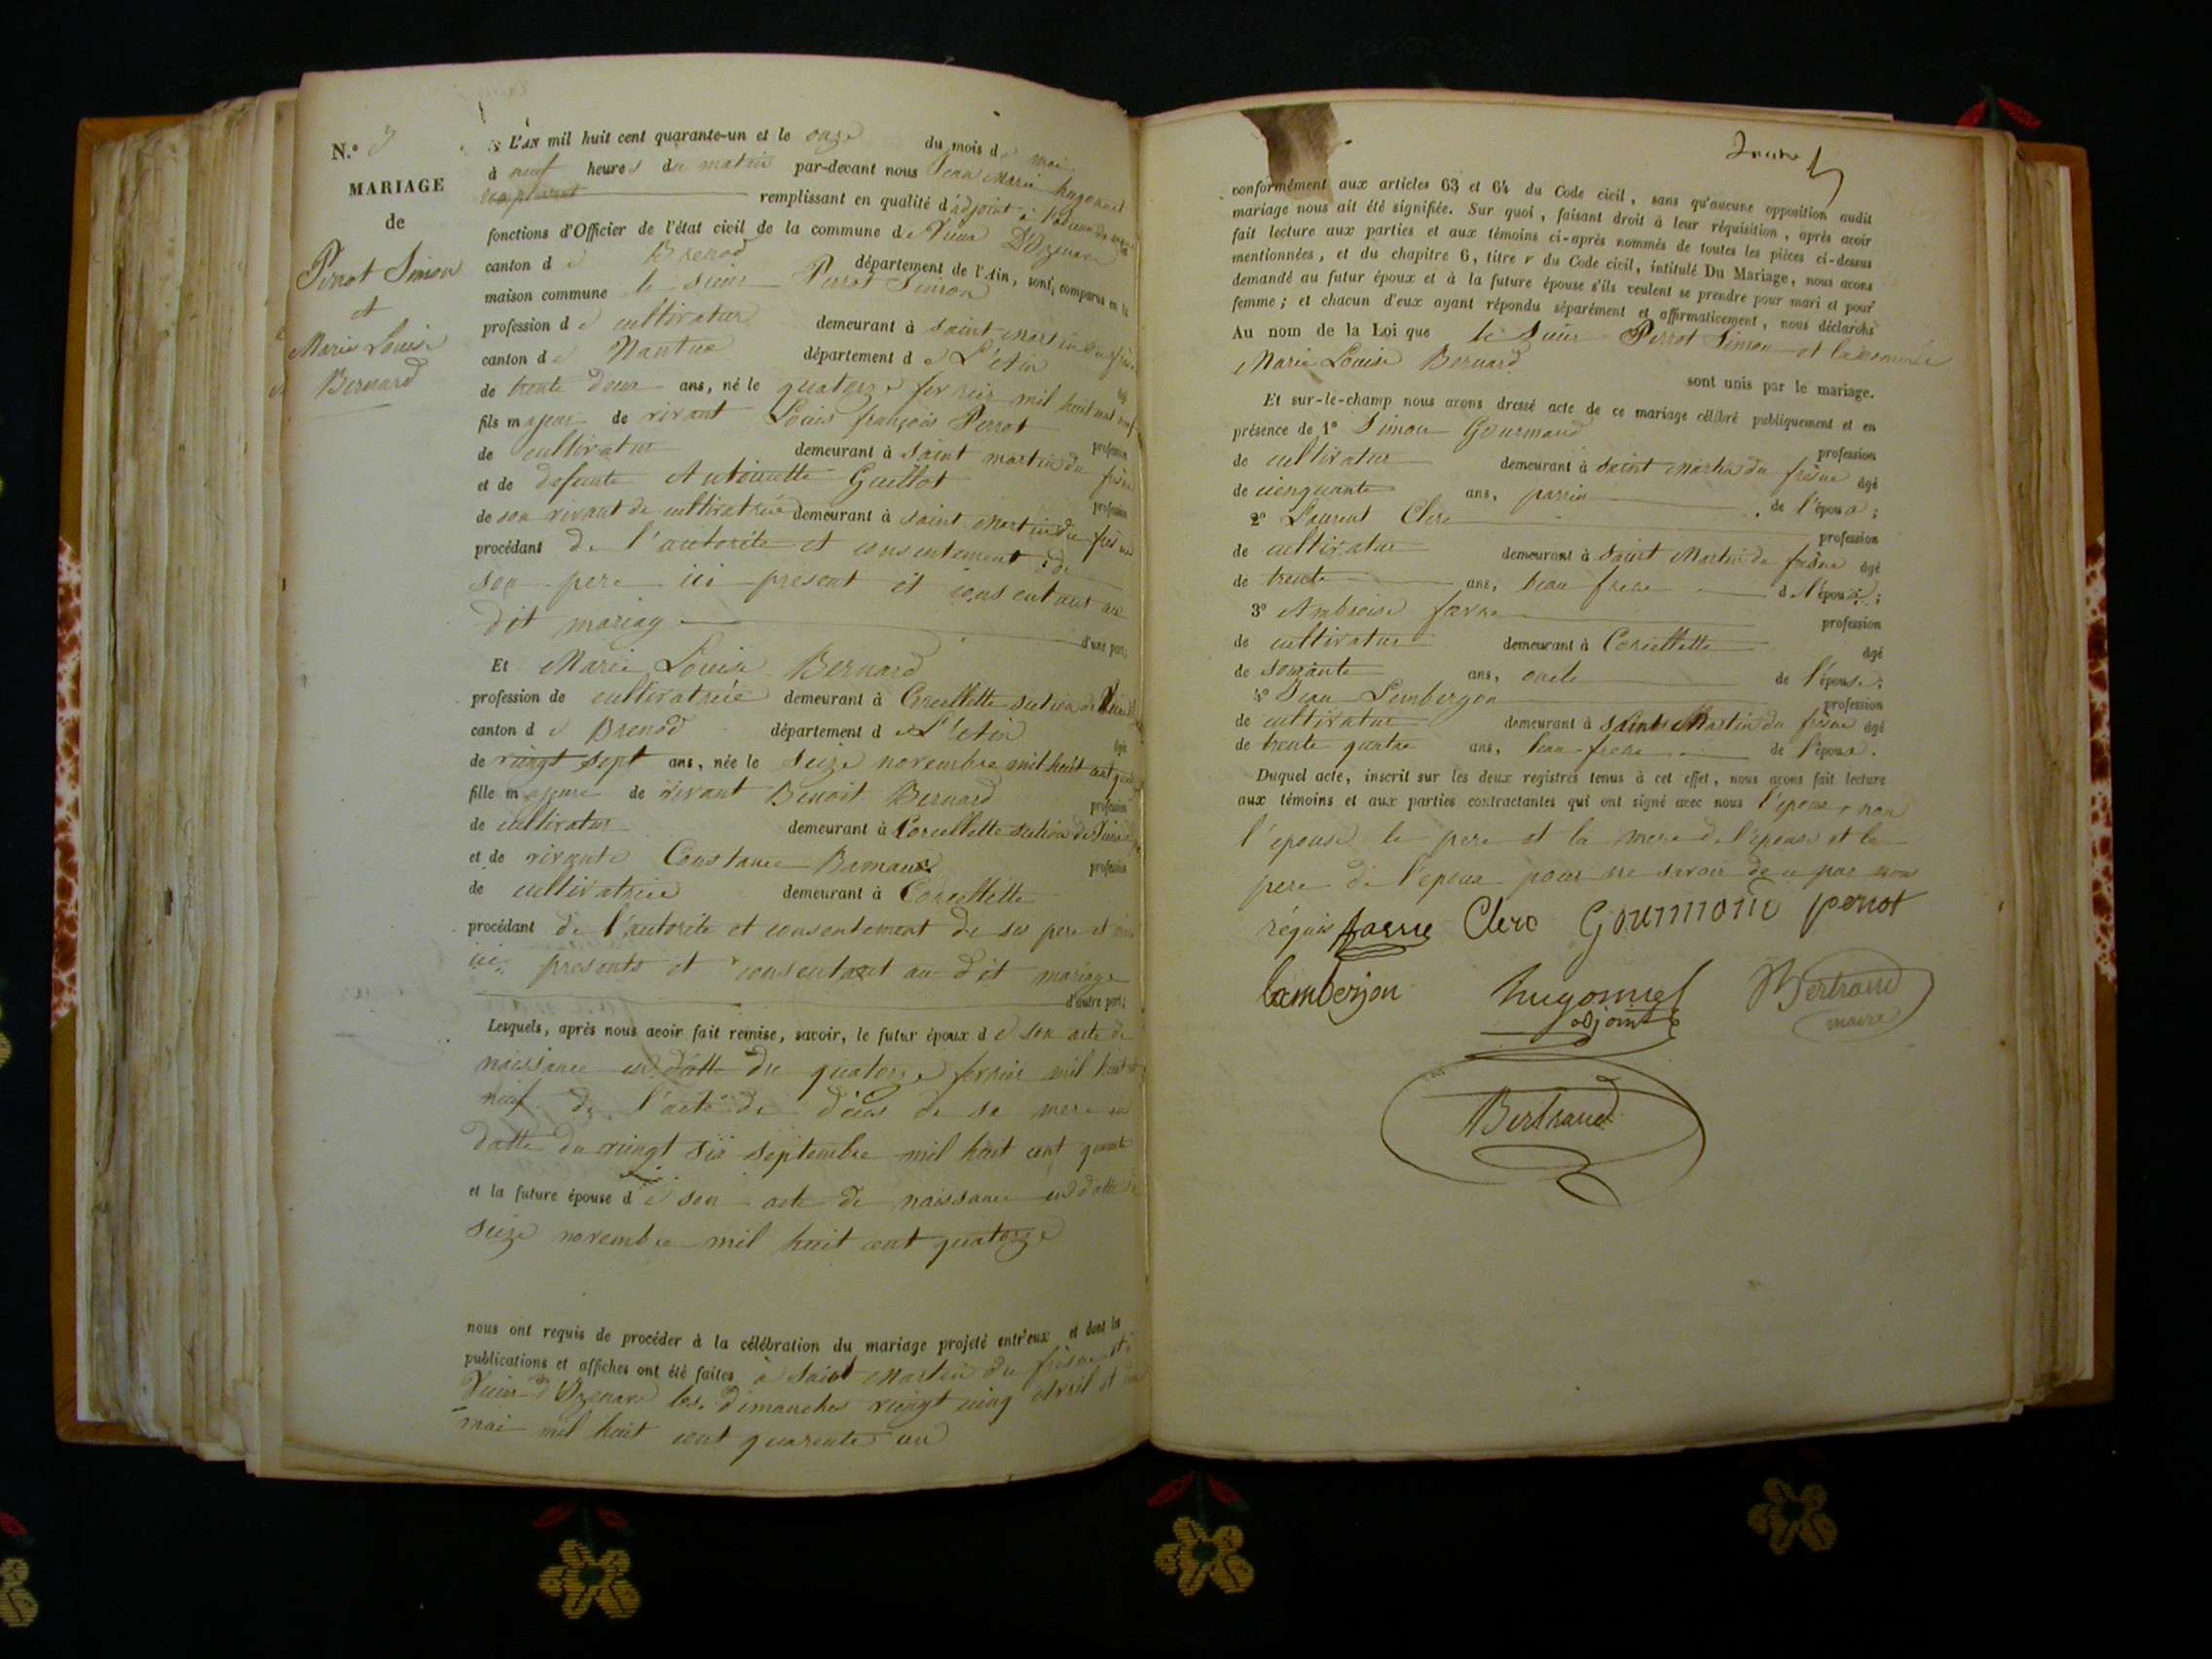 N.° 3
MARIAGE
de
Perrot Simon
et
Marie Louise
Bernard
L'AN mil huit cent quarante-un et le onze du mois de mai
à neuf heures du matin par-devant nous Jean Marie hugonnet
remplissant en qualité d'adjoint
fonctions d'Officier de l'état civil de la commune de Vieux D'Izenave
canton de Brenod département de l'Ain, sont comparus en la
maison commune le sieur Perrot Simon
profession de cultivateur demeurant à saint Martin du frêne
canton de Nantua département de L'Ain âgé
de trente deux ans, né le quatorze fevrier mil huit cent neuf
fils majeur de vivant Louis françois Perrot profession
de cultivateur demeurant à saint martin du frêne
et de defunte Antoinette Guillot profession
de son vivant de cultivatrice demeurant à saint Martin du frêne
procédant de l'autorité et consentement de
son pere ici present et consentant au
dit mariage d'une part;
Et Marie Louise Bernard
profession de cultivatrice demeurant à Corcellette section de Vieux
canton de Brenod département de L'Ain âgé
de vingt sept ans, née le seize novembre mil huit cent quatorze
fille majeure de vivant Benoit Bernard profession
de cultivateur demeurant à Corcellette section de Vieux
et de vivante Constance profession
de cultivatrice demeurant à Corcellette
procédant de l'autorité et consentement de ses pere et mere
ici presents et consentant au dit mariage
d'autre part;
Lesquels, après nous avoir fait remise, savoir, le futur époux de son acte de
naissance en datte du quatorze fevrier mil huit cent
neuf de l'acte de décès de sa mere en
datte du vingt six septembre mil huit cent quarante
et la future épouse de son acte de naissance en datte du
seize novembre mil huit cent quatorze
nous ont requis de procéder à la célébration du mariage projeté entr'eux et dont les
publications et affiches ont été faites à Saint Martin du frêne et à
Vieux d'Izenave les dimanches vingt cinq avril et deux
mai mil huit cent quarante un
conformément aux articles 63 et 64 du Code civil, sans qu'aucune opposition audit
mariage nous ait été signifiée. Sur quoi, faisant droit à leur réquisition, après avoir
fait lecture aux parties et aux témoins ci-après nommés de toutes les pièces ci-dessus
mentionnées, et du chapitre 6, titre v du Code civil, intitulé Du Mariage, nous avons
demandé au futur époux et à la future épouse s'ils veulent se prendre pour mari et pour
femme; et chacun d'eux ayant répondu séparément et affirmativement, nous déclarons
Au nom de la Loi que le sieur Perrot Simon et la nommée
Marie Louise Bernard
sont unis par le mariage.
Et sur-le-champ nous avons dressé acte de ce mariage célébré publiquement et en
présence de 1° Simon Gourmand profession
de cultivateur demeurant à saint Martin du frêne âgé
de cinquante ans, parrin de l'époux;
2° Laurent Clerc profession
de cultivateur demeurant à saint Martin du frêne âgé
de trente ans, beau frere de l'époux;
3° Ambroise favre profession
de cultivateur demeurant à Corcellette âgé
de soixante ans, oncle de l'épouse;
4° Jean Lemberjon profession
de cultivateur demeurant à saint Martin du frêne âgé
de trente quatre ans, beau frere de l'époux.
Duquel acte, inscrit sur les deux registres tenus à cet effet, nous avons fait lecture
aux témoins et aux parties contractantes qui ont signé avec nous l'époux, non
l'épouse le pere et la mere de l'épouse et le
pere de l'époux pour ne savoir de ce par nous
réquis favre Clerc Gourmand perrot
Lamberjon hugonnet Bertrand
adjoint maire
Bertrand